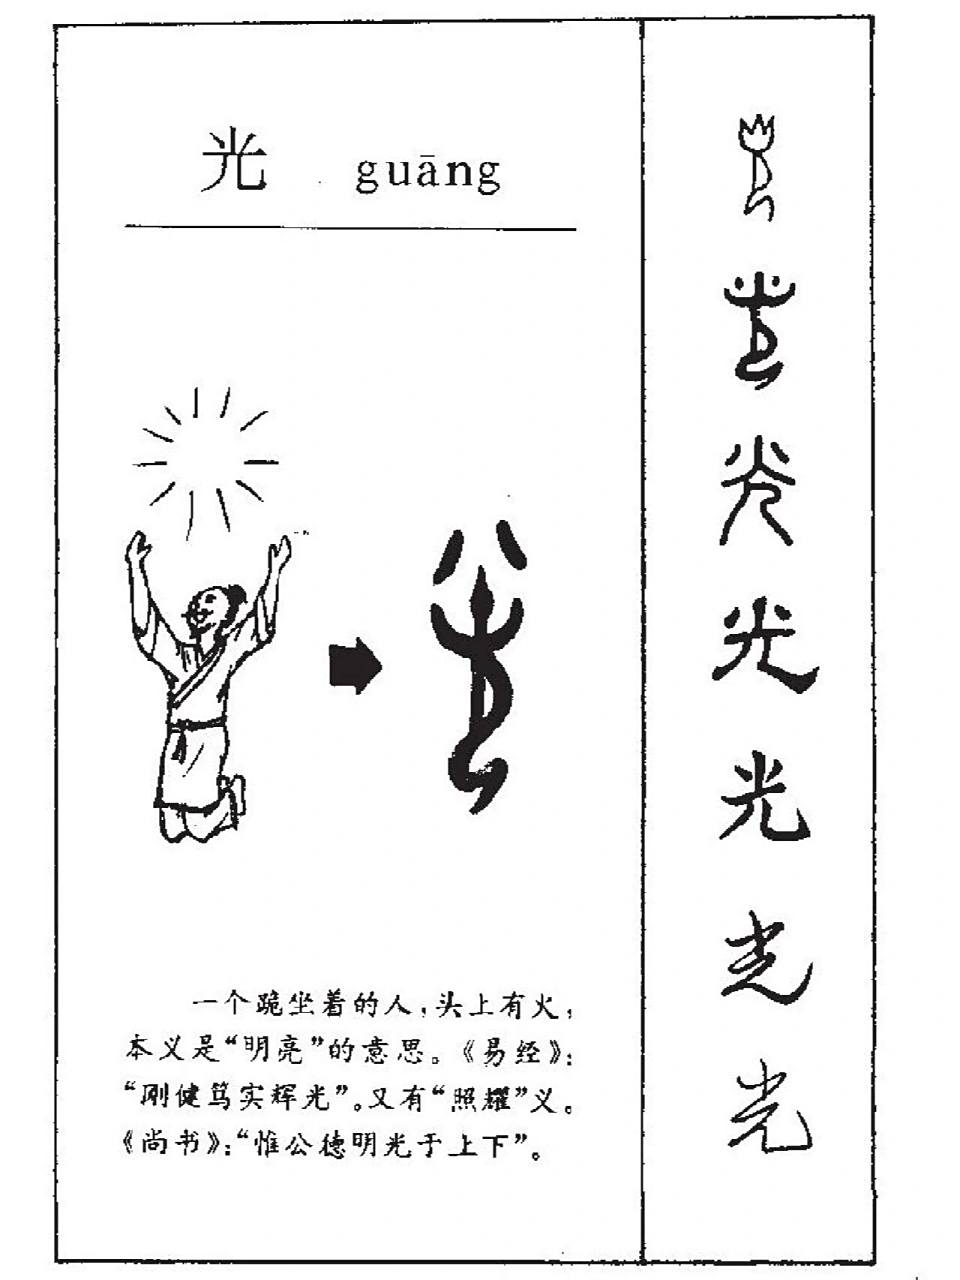 光 guāng
一个跪坐着的人，头上有火，
本义是“明亮”的意思。《易经》：
“刚健笃实辉光”。又有“照耀”义。
《尚书》：“惟公德明光于上下”。
光
光
光
光
光